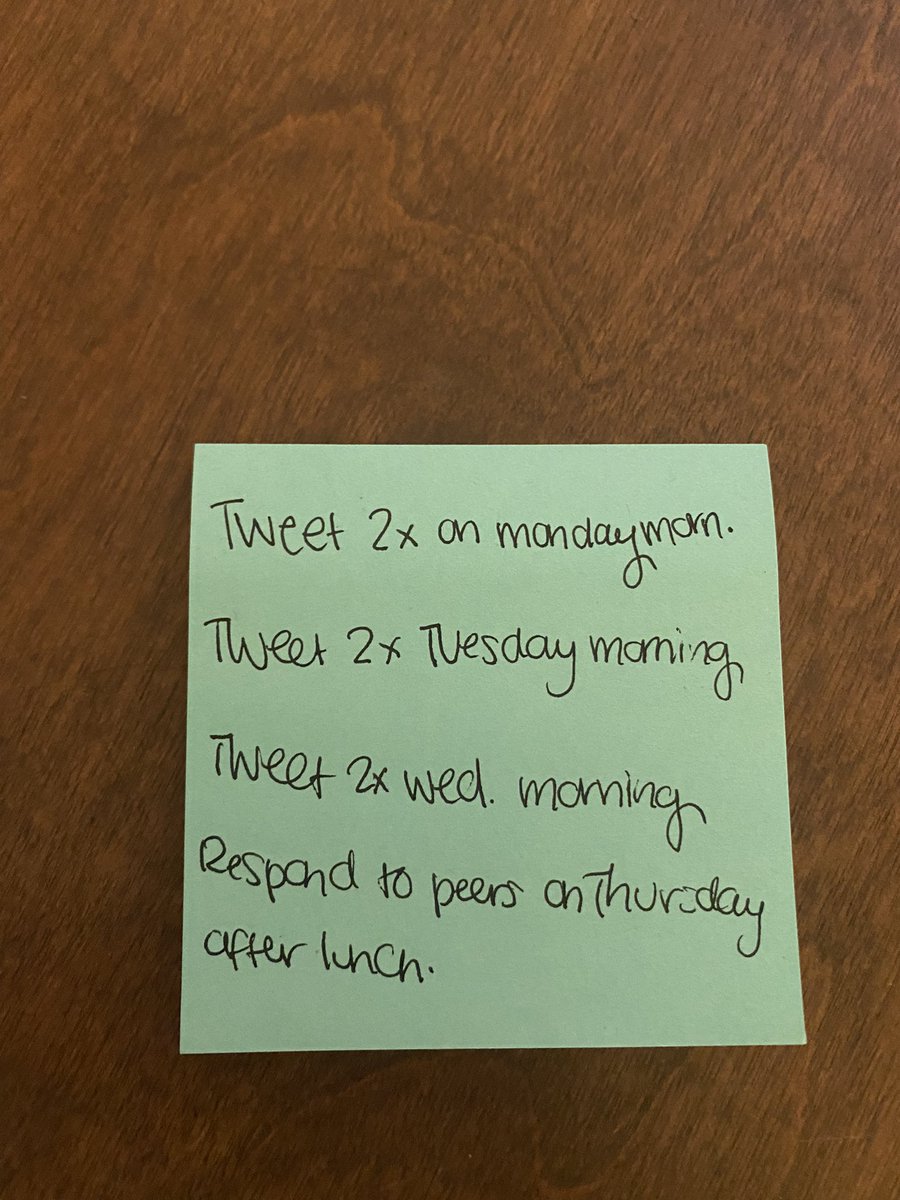 Tweet 2x on monday morn.
Tweet 2x Tuesday morning
Tweet 2x wed. morning
Respond to peers on Thursday
after lunch.